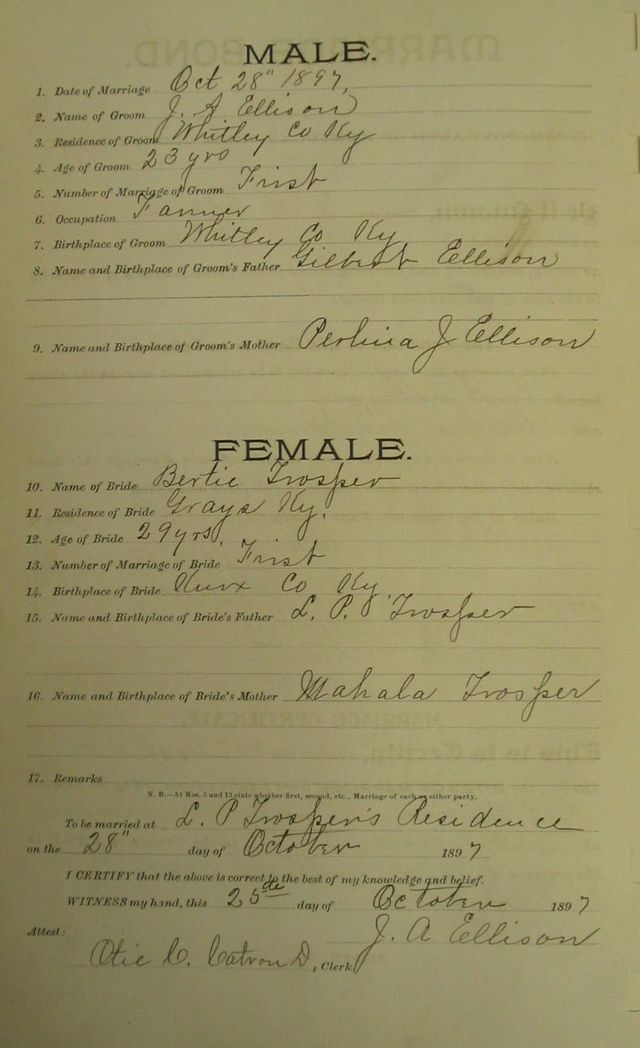 MALE.
1. Date of Marriage Oct 28" 1897,
2. Name of Groom J. A Ellison
3. Residence of Groom Whitley Co Ky
4. Age of Groom 23 yrs
5. Number of Marriage of Groom First
6. Occupation Farmer
7. Birthplace of Groom Whitley Co Ky
8. Name and Birthplace of Groom's Father Gilbert Ellison
9. Name and Birthplace of Groom's Mother Perlina J. Ellison
FEMALE.
10. Name of Bride Bertie Trosper
11. Residence of Bride Grays Ky.
12. Age of Bride 29 yrs.
13. Number of Marriage of Bride First
14. Birthplace of Bride Knox Co Ky.
15. Name and Birthplace of Bride's Father L. P. Trosper
16. Name and Birthplace of Bride's Mother Mahala Trosper
17. Remarks
N. B.—At Nos. 5 and 13 state whether first, second, etc., Marriage of each or either party.
To be married at L. P Trosper's Residence
on the 28" day of October 1897
I CERTIFY that the above is correct to the best of my knowledge and belief.
WITNESS my hand, this 25 day of October 1897
J. A Ellison
Attest:
Otic C. Catron D, Clerk